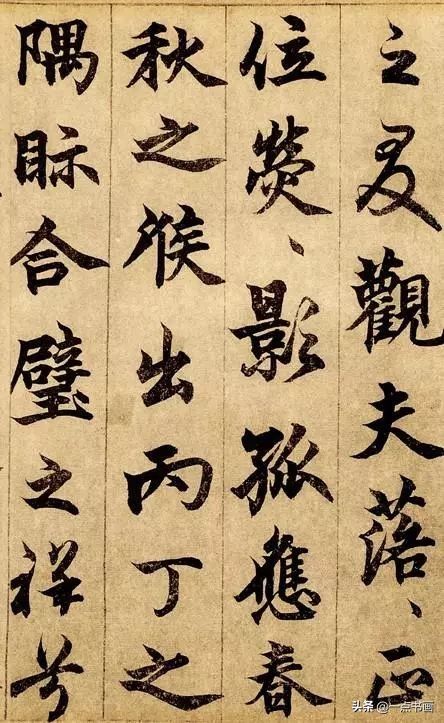 之觀夫落、正
位熒、影孤應春
秋之候出丙丁之
隅眎合璧之祥兮
头条 @一点书画